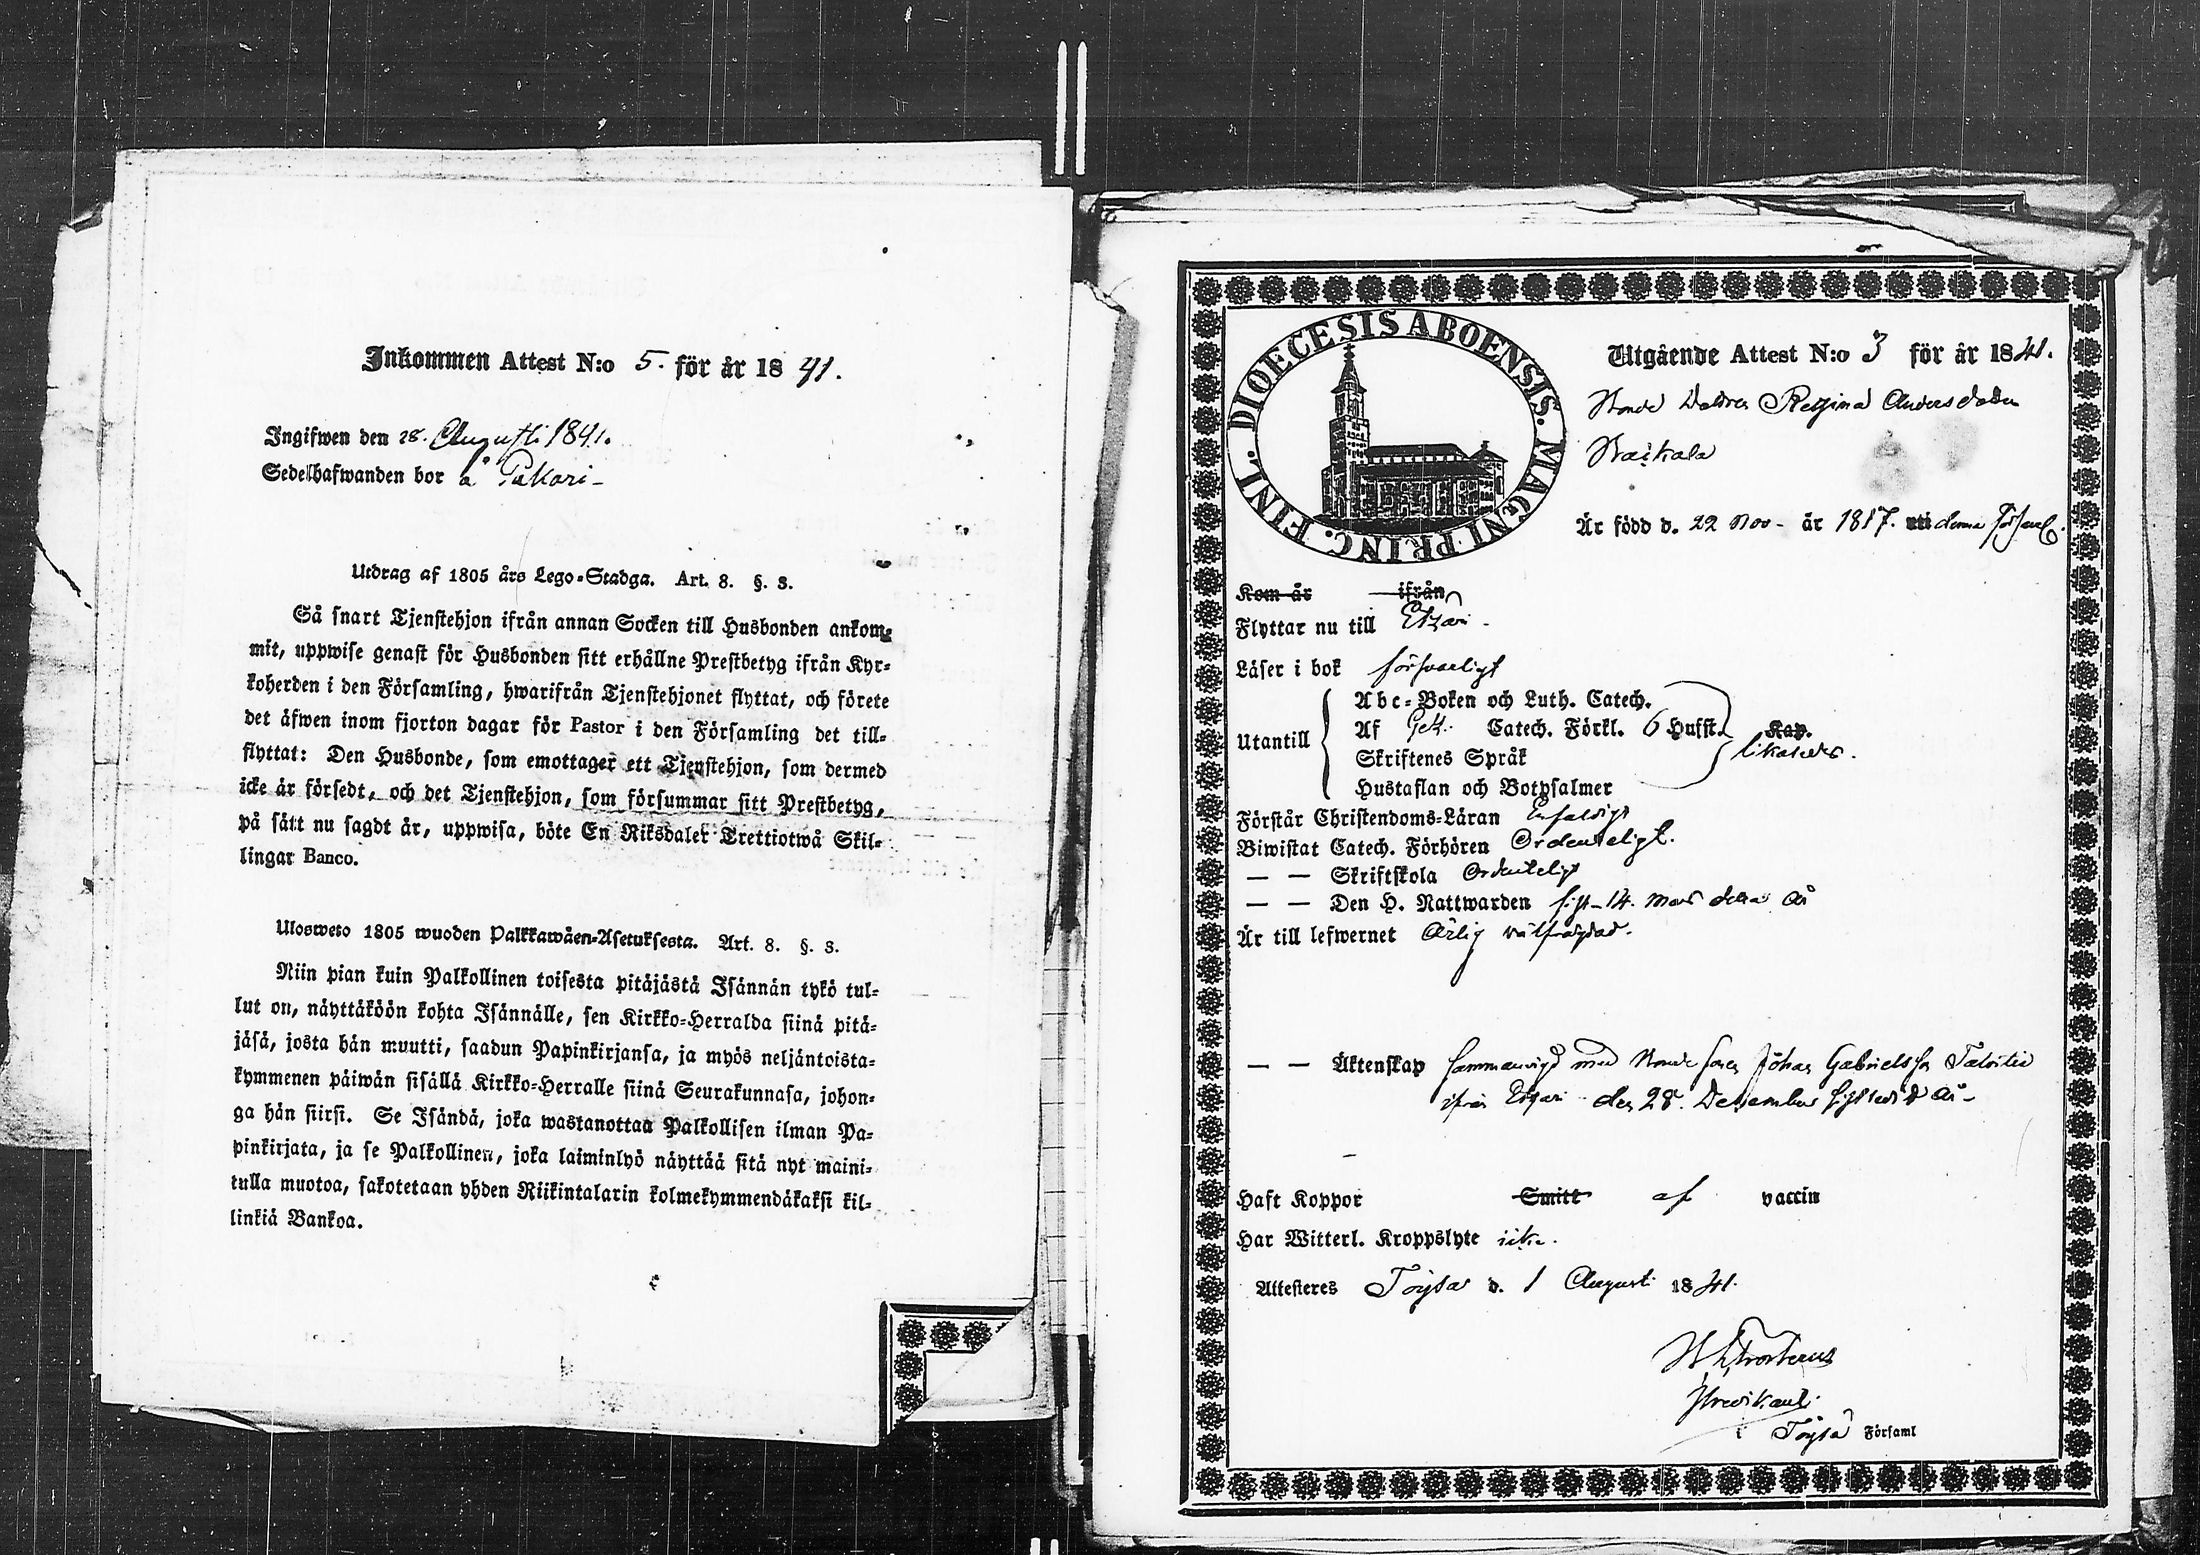 Inkommen Attest N:o 5. för år 1841.
Ingifwen den 28. Augusti 1841.
Sedelhafwanden bor å Pakari
Utdrag af 1805 års Lego-Stadga. Art. 8. §. 3.
Så snart Tjenstehjon ifrån annan Socken till Husbonden ankom-
mit, uppwise genast för Husbonden sitt erhållne Prestbetyg ifrån Kyr-
koherden i den Församling, hwarifrån Tjenstehjonet flyttat, och förete
det äfwen inom fjorton dagar för Pastor i den Församling det till-
flyttat: Den Husbonde, som emottager ett Tjenstehjon, som dermed
icke är försedt, och det Tjenstehjon, som försummar sitt Prestbetyg,
på sätt nu sagdt är, uppwisa, böte En Riksdaler Trettiotwå Skil-
lingar Banco.
Ulosweto 1805 wuoden Palkkawäen-Asetuksesta. Art. 8. §. 3.
Niin pian kuin Palkollinen toisesta pitäjästä Isännän tykö tul-
lut on, näyttäköön kohta Isännälle, sen Kirkko-Herralda siinä pitä-
jäsä, josta hän muutti, saadun Papinkirjansa, ja myös neljäntoista-
kymmenen päiwän sisällä Kirkko-Herralle siinä Seurakunnasa, johon-
ga hän siirsi. Se Isändä, joka wastanottaa Palkollisen ilman Pa-
pinkirjata, ja se Palkollinen, joka laiminlyö näyttää sitä nyt maini-
tulla muotoa, sakotetaan yhden Riikintalarin kolmekymmendäkaksi kil-
linkiä Bankoa.
DIOECESIS ABOENSIS. MAGNI PRINC. FINL.
Utgående Attest N:o 3 för år 1841.
Bonde Dottren Regina Andersdotter
Är född d. 22 Nov. år 1817. uti denna Förs.
Kom år ifrån
Flyttar nu till Etseri
Läser i bok försvarligt
Abc-Boken och Luth. Catech.
Utantill Af Catech. Förkl. 6 Hufst. Kap.
likaledes.
Skriftenes Språk
Hustaflan och Botpsalmer
Förstår Christendoms-Läran Enfaldigt
Biwistat Catech. Förhören Ordenteligt.
— — Skriftskola Ordenteligt
— — Den H. Nattwarden sist 14. Mars detta år
Är till lefwernet Ärlig välfrägdad.
— — Äktenskap sammanvigd med Bonde sonen Johan Gabrielsson
ifrån Etseri den 28. December sistledit år
Haft Koppor Smitt af vaccin
Har Witterl. Kroppslyte icke.
Attesteres Töysä d. 1 Augusti 1841.
i Töysä Församl